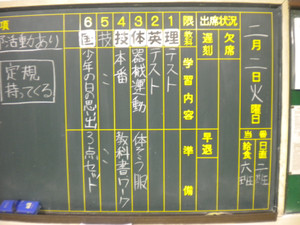 二月二日火曜日
当番
日直 二班
給食 六班
出席状況
欠席
遅刻
早退
限 教科 学習内容 準備
1 理 テスト
2 英 テスト
3 体 器械運動 体そう服
4 技 本番 教科書ワーク
5 技 〃 〃
6 国 少年の日の思い出 3点セット
項
活動あり
定規
持ってくる